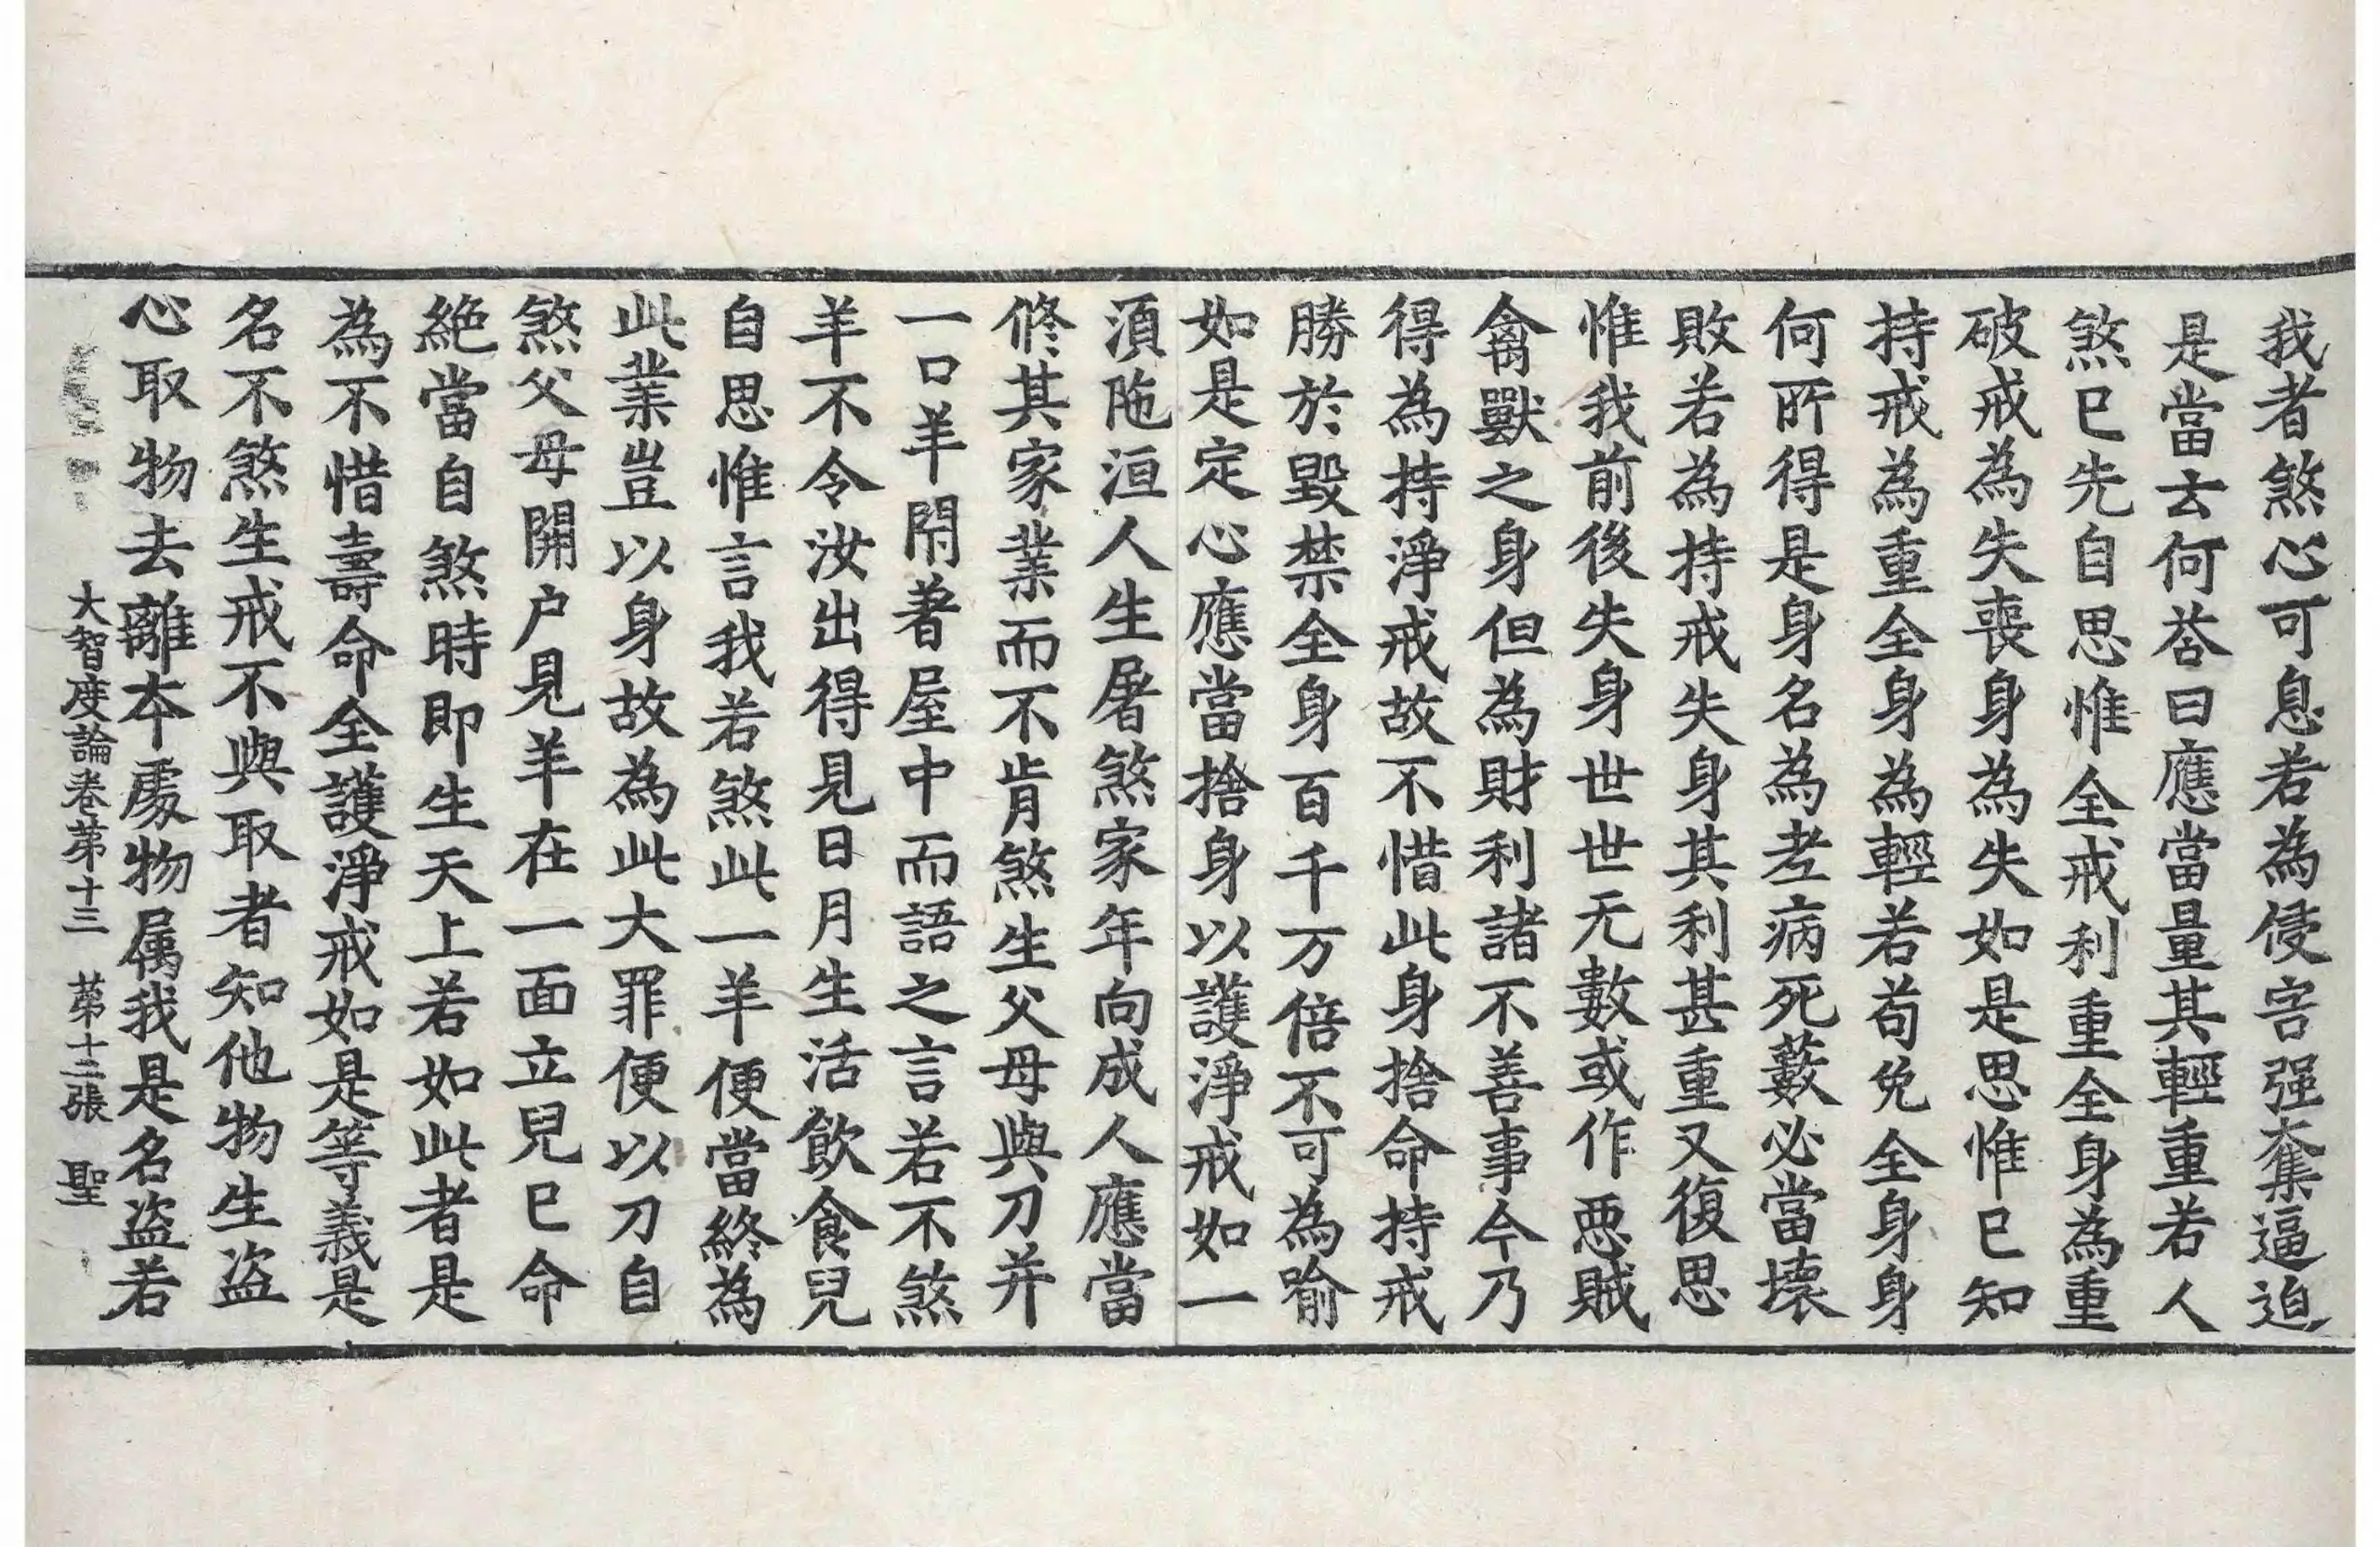 我者煞心可息若為侵害强奪逼迫
是當云何荅曰應當量其輕重若人
煞巳先自思惟全戒利重全身為重
破戒為失喪身為失如是思惟巳知
持戒為重全身為輕若苟免全身身
何所得是身名為老病死藪必當壞
敗若為持戒失身其利甚重又復思
惟我前後失身世世无數或作惡賊
禽獸之身但為財利諸不善事今乃
得為持淨戒故不惜此身捨命持戒
勝於毀禁全身百千万倍不可為喻
如是定心應當捨身以護淨戒如一
湏陁洹人生屠煞家年向成人應當
修其家業而不肯煞生父母與刀并
一口羊閇著屋中而語之言若不煞
羊不令汝出得見日月生活飲食兒
自思惟言我若煞此一羊便當終為
此業豈以身故為此大罪便以刀自
煞父母開户見羊在一面立兒巳命
絶當自煞時即生天上若如此者是
為不惜壽命全護淨戒如是等義是
名不煞生戒不與取者知他物生盗
心取物去離本處物属我是名盗若
大智度論卷苐十三　苐十二張　聖